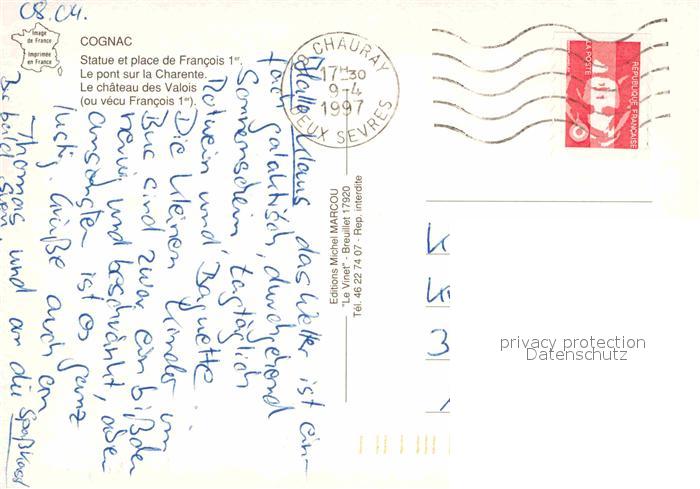 08.04.
Image
de France
Imprimée
en France
COGNAC
Statue et place de François 1er.
Le pont sur la Charente.
Le château des Valois
(ou vécu François 1er).
CHAURAY
17H30
9-4
1997
DEUX SEVRES
RÉPUBLIQUE FRANÇAISE
LA POSTE
Hallo Klaus, das Wetter ist ein-
fach galaktisch, durchgehend
Sonnenschein, tagtäglich
Rotwein und Baguette.
Die kleinen Kinder im
Bus sind zwar ein bißchen
naiv und beschränkt, aber
ansonsten ist es ganz
lustig. Grüße auch an
Thomas und an die
Bis bald, Sven
Editions Michel MARCOU
"Le Vinet" - Breuillet 17920
Tél. 46 22 74 07 - Rep. interdite
K
K
3
privacy protection
Datenschutz